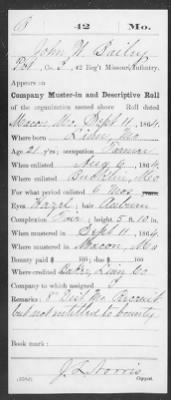 B 42 Mo.
John W. Bailey
Pvt., Co. , 42 Reg't Missouri Infantry.
Appears on
Company Muster-in and Descriptive Roll
of the organization named above. Roll dated
Macon, Mo. Sept 11, 1864.
Where born Linn, Mo
Age 21 y'rs; occupation Farmer
When enlisted Aug 6, 1864.
Where enlisted Bucklin, Mo
For what period enlisted 6 mos years.
Eyes Hazel; hair Auburn
Complexion Fair; height 5 ft. 10 in.
When mustered in Sept 11, 1864.
Where mustered in Macon, Mo
Bounty paid $ 100; due $ 100
Where credited Linn Co
To which assigned
Remarks: 8" Dist Mo Recruit
but not entitled to bounty
Book mark:
Copyist.